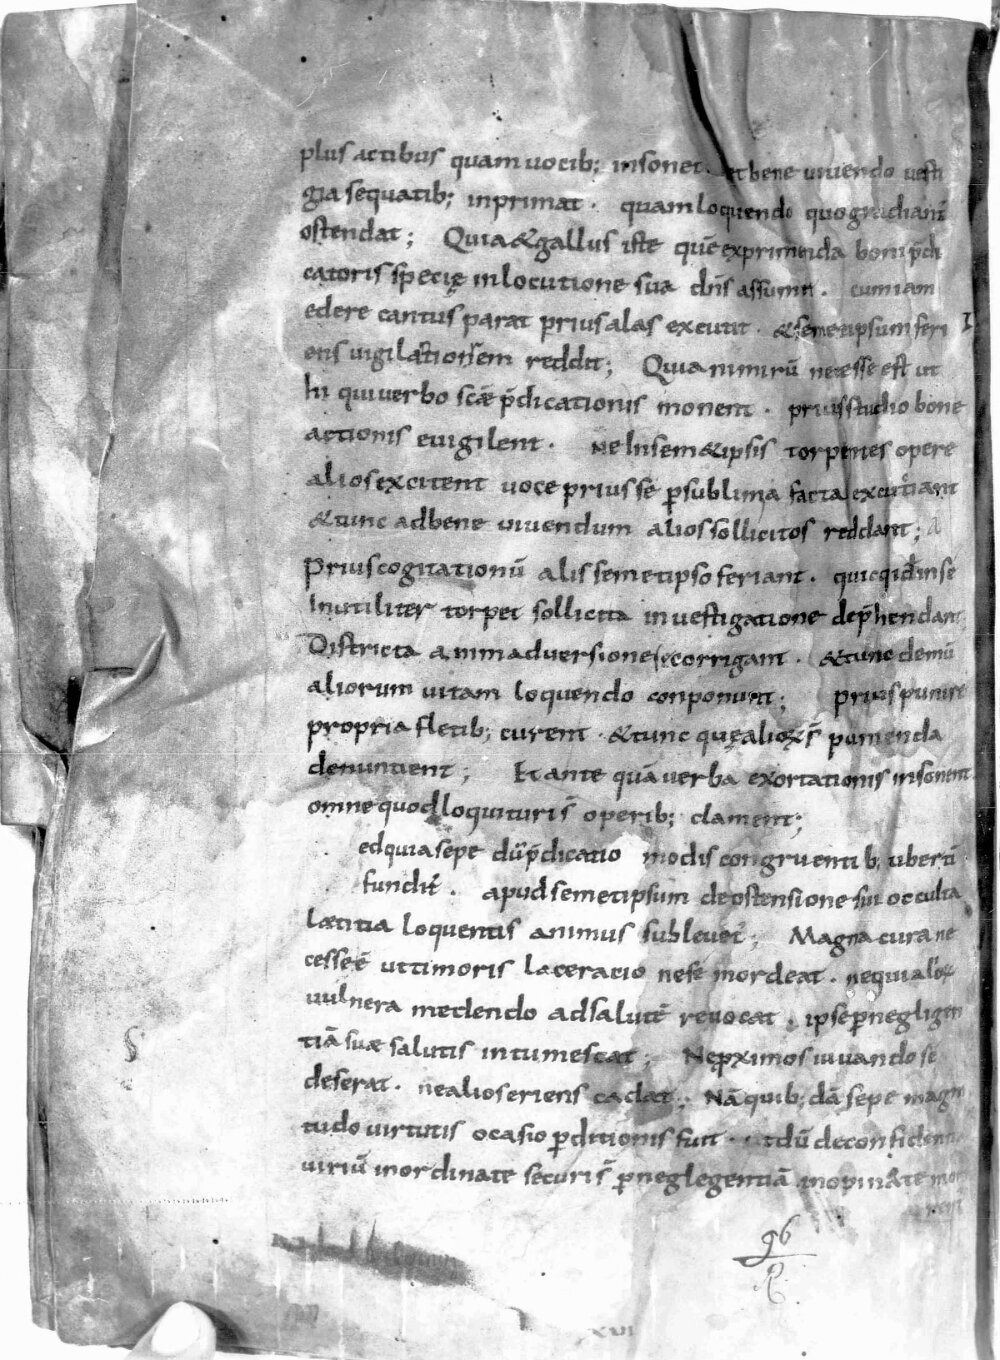 plus actibus quam uocib; insonet. et bene uiuendo uesti
gia sequatib; inprimat. quam loquendo quo gradiant̄
ostendat; Quia & gallus iste quē exprimenda boni p̄di
catoris specię in locutione sua dn̄s assumit. cum iam
edere cantus parat prius alas excutit. & semetipsum feri
ens uigilantiorem reddit; Quia nimirū necesse est ut
hi qui uerbo scǣ p̄dicationis monent. prius studio bone
actionis euigilent. Ne in sem&ipsis torpentes opere
alios excitent uoce prius se p̱ sublimia facta excutiant
& tunc ad bene uiuendum alios sollicitos reddant;
Prius cogitationū alis semetipso feriant. quicqid in se
Inutiliter torpet sollicita inuestigatione dep̄hendant
Districta animaduersione corrigant. & tunc demū
aliorum uitam loquendo conponunt; prius punire
propria fletib; curent. & tunc quę alioꝝ s̄ punienda
denuntient; Et ante quā uerba exortationis insonent
omne quod loquituri s̄ operib; clament;
ed quia sepe dū p̄dicatio modis congruentib; uberti
fundit̄. apud semetipsum de ostensione sui occulta
lætitia loquentis animus subleuet̄; Magna cura ne
cesse ē ut timoris laceratio nese mordeat. ne qui alioꝝ
uulnera medendo ad salutē reuocat. ipse p̱ negligen
tiā suæ salutis intumescat; Ne p̱ximos iuuando sē
deserat. ne alios eriens cadat; Nā quib; dā sepe magni
tudo uirtutis ocasio p̱ditionis fuit. dū de confidentia
uiriū inordinate securi s̄ p̱ neglegentiā inopinate
96
XVI